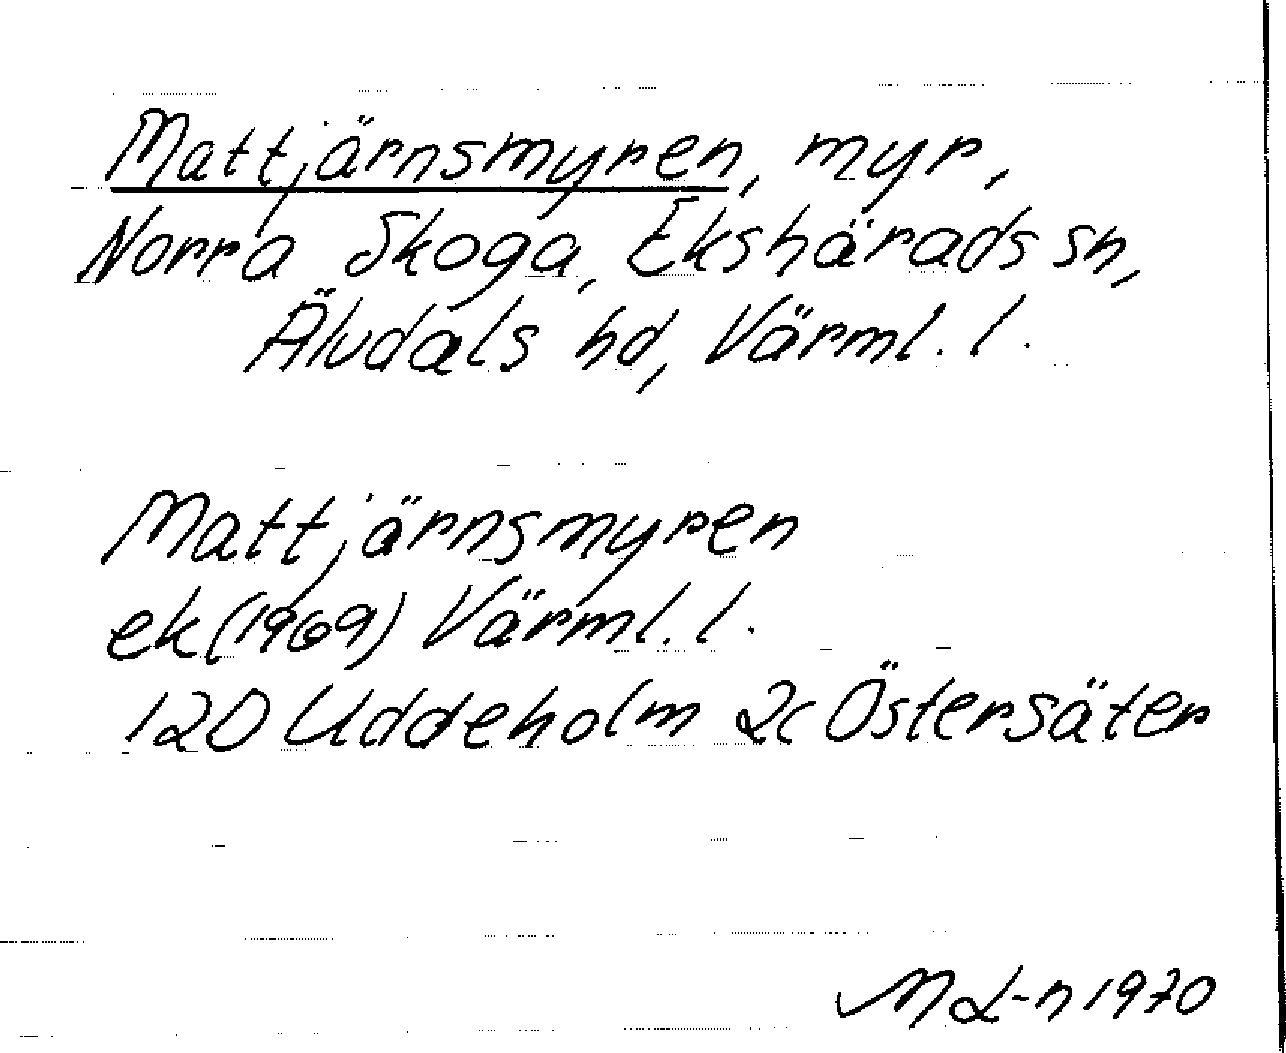 Mattjärnsmyren, myr,
Norra Skoga, Ekshärads sn,
Älvdals hd, Värml. l.
Mattjärnsmyren
ek (1969) Värml. l.
12D Uddeholm 2c Östersäter
M L-n 1970